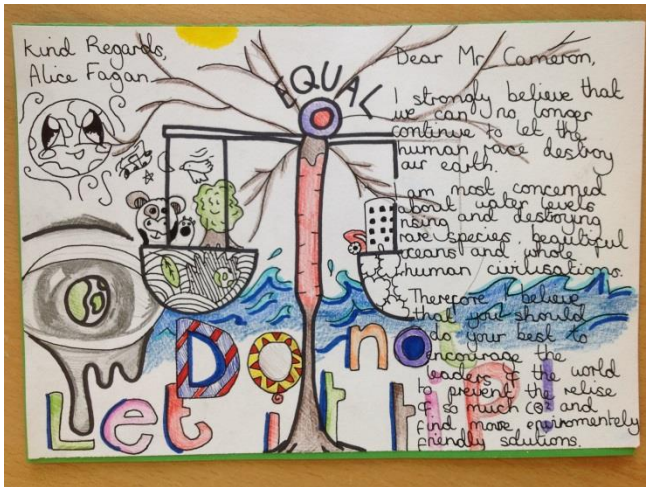 Kind Regards,
Alice Fagan.
EQUAL
Dear Mr Cameron,
I strongly believe that
we can no longer
continue to let the
human race destroy
our earth.
I am most concerned
about water levels
rising and destroying
rare species, beautiful
oceans and whole
human civilisations.
Therefore I believe
that you should
do your best to
encourage the
leaders of the world
to prevent the relise
of so much CO2 and
find more enviromentely
friendly solutions.
Do not
Let it tip!